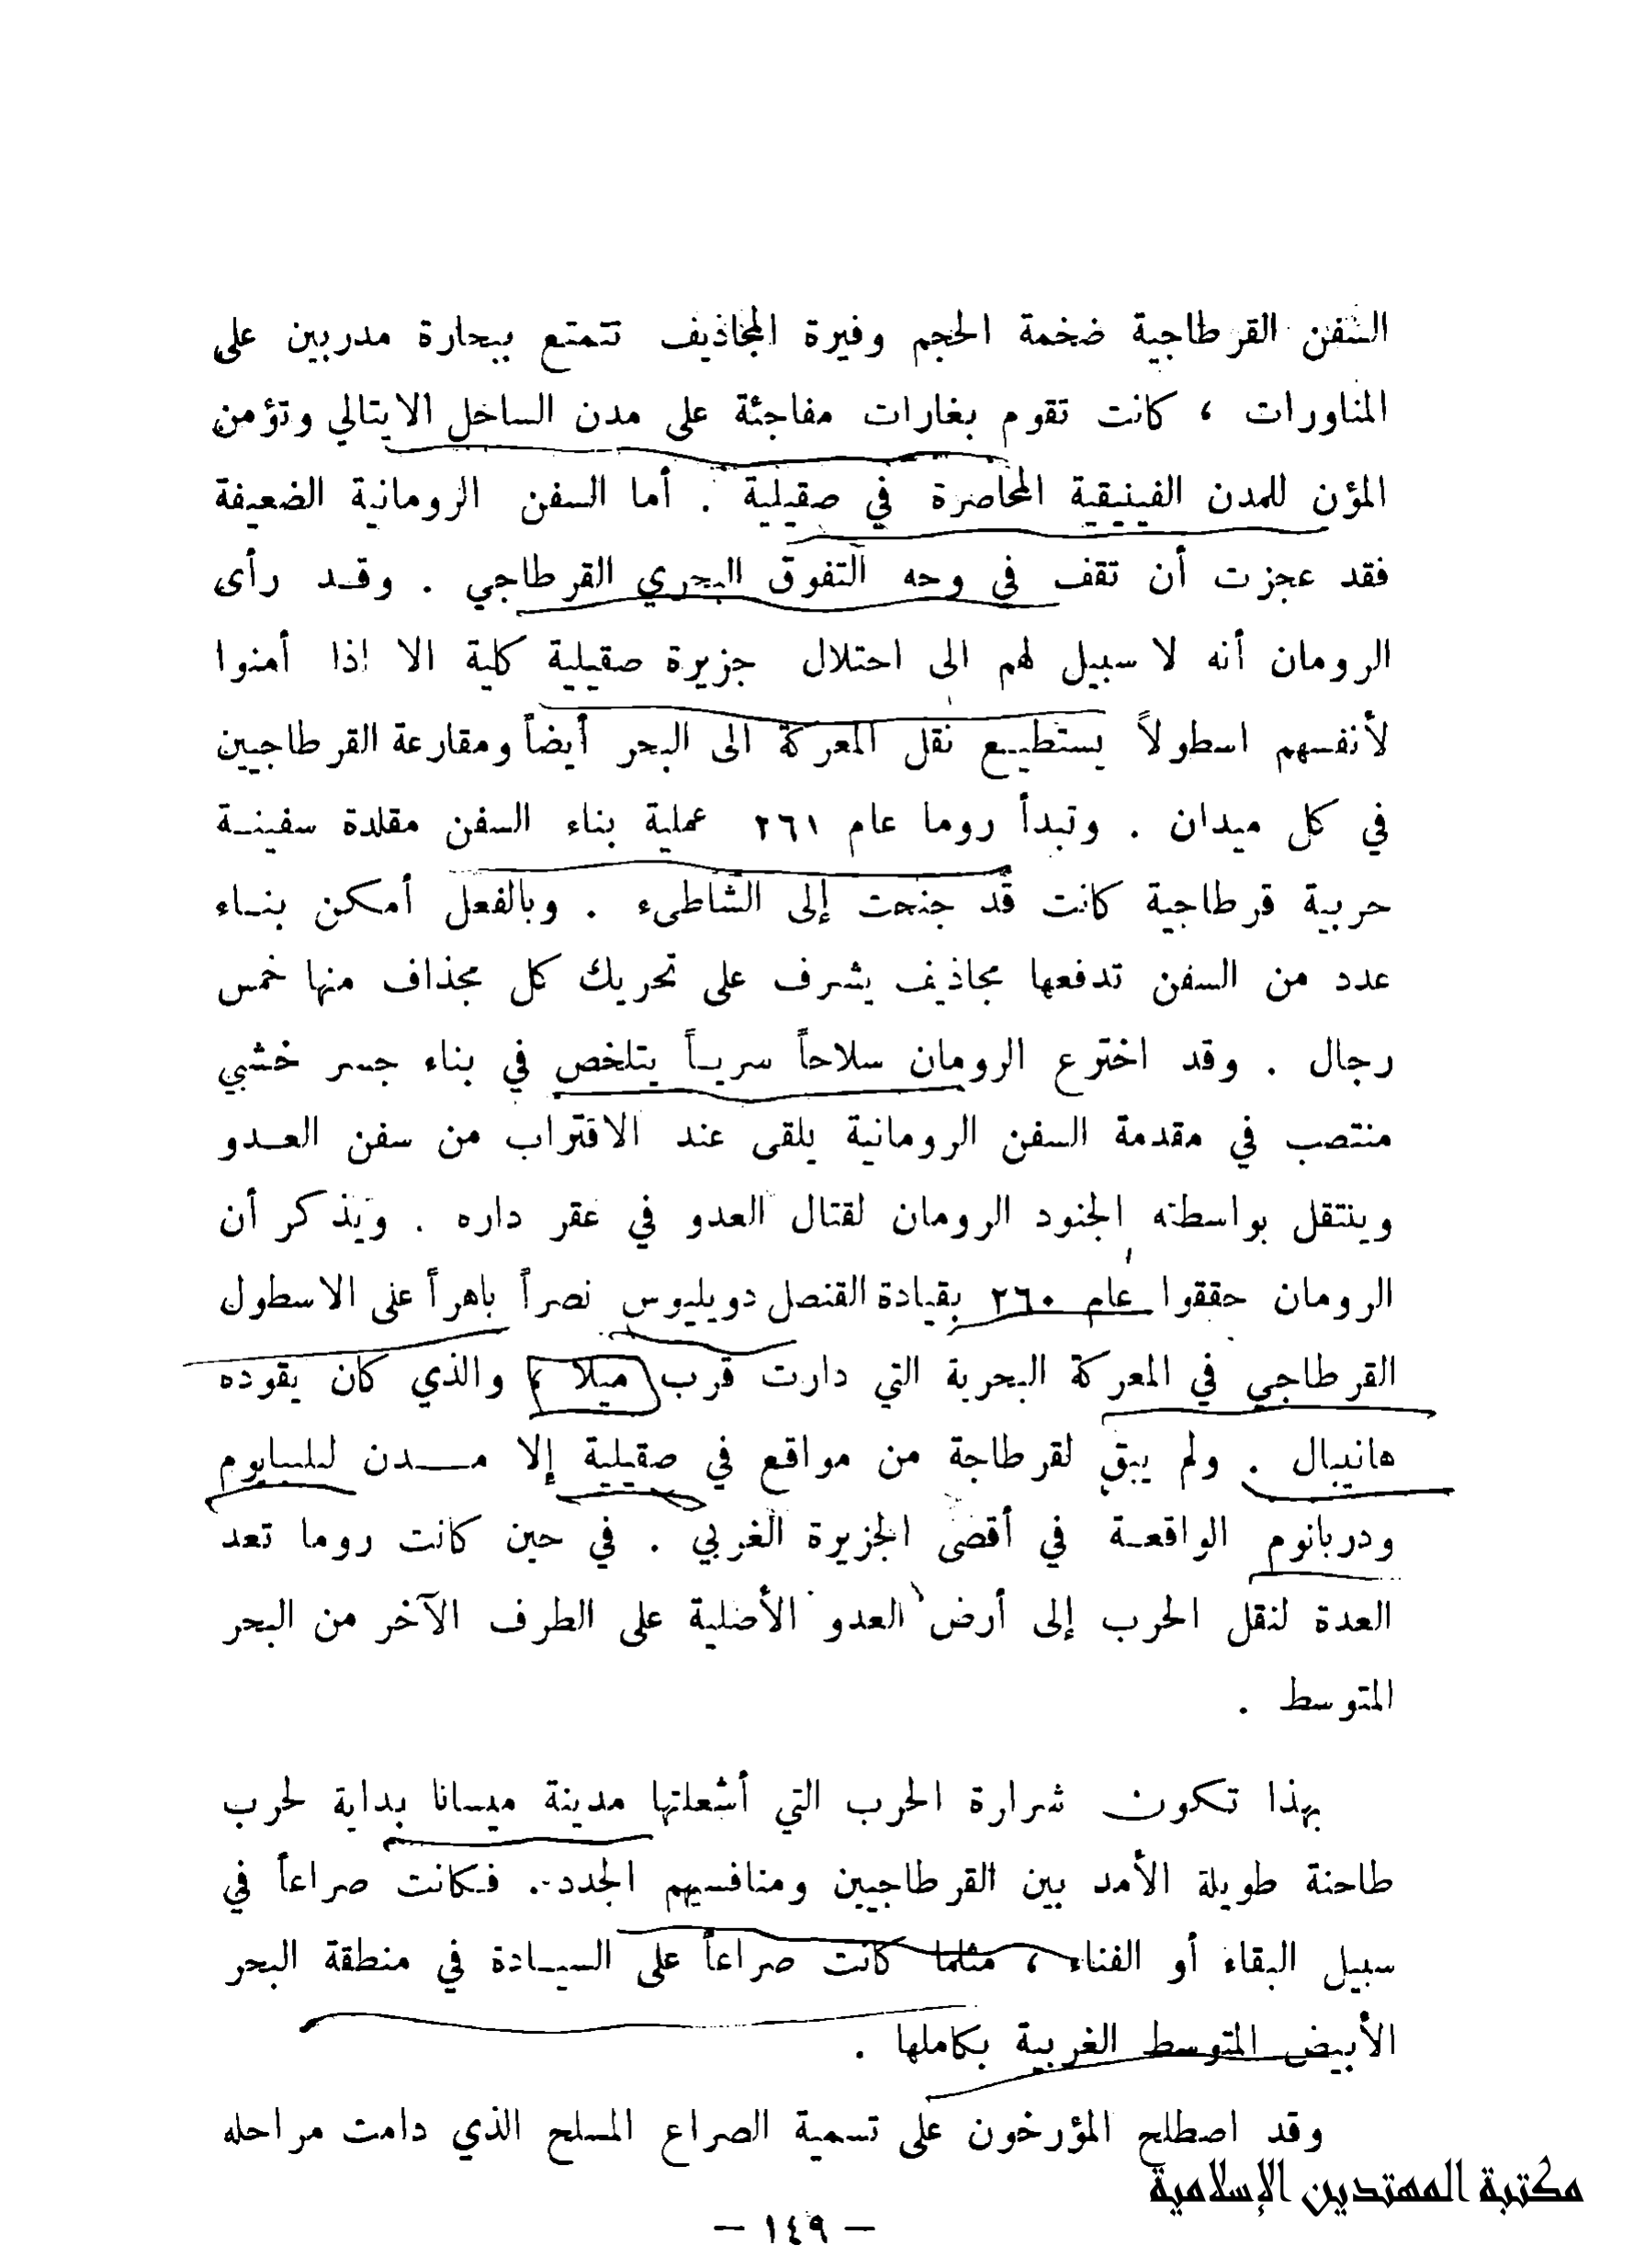 السفن القرطاجية ضخمة الحجم وفيرة المجاذيف تتمتع ببحارة مدربين على
المناورات ، كانت تقوم بغارات مفاجئة على مدن الساحل الايتالي وتؤمن
المؤن للمدن الفينيقية المحاصرة في صقيلية . أما السفن الرومانية الضعيفة
فقد عجزت أن تقف في وجه التفوق البحري القرطاجي . وقد رأى
الرومان أنه لا سبيل لهم الى احتلال جزيرة صقيلية كلية الا اذا أمنوا
لأنفسهم اسطولاً يستطيع نقل المعركة الى البحر أيضاً ومقارعة القرطاجيين
في كل ميدان . وتبدأ روما عام ٢٦١ عملية بناء السفن مقلدة سفينة
حربية قرطاجية كانت قد جنحت إلى الشاطىء . وبالفعل أمكن بناء
عدد من السفن تدفعها مجاذيف يشرف على تحريك كل مجذاف منها خمس
رجال . وقد اخترع الرومان سلاحاً سرياً يتلخص في بناء جسر خشبي
منتصب في مقدمة السفن الرومانية يلقى عند الاقتراب من سفن العدو
وينتقل بواسطته الجنود الرومان لقتال العدو في عقر داره . ويذكر أن
الرومان حققوا عام ٢٦٠ بقيادة القنصل دويليوس نصراً باهراً على الاسطول
القرطاجي في المعركة البحرية التي دارت قرب ميلا ، والذي كان يقوده
هانيبال . ولم يبق لقرطاجة من مواقع في صقيلية إلا مدن ليليبايوم
ودربانوم الواقعة في أقصى الجزيرة الغربي . في حين كانت روما تعد
العدة لنقل الحرب إلى أرض العدو الأصلية على الطرف الآخر من البحر
المتوسط .
بهذا تكون شرارة الحرب التي أشعلتها مدينة ميسانا بداية لحرب
طاحنة طويلة الأمد بين القرطاجيين ومنافسيهم الجدد . فكانت صراعاً في
سبيل البقاء أو الفناء ، مثلما كانت صراعاً على السيادة في منطقة البحر
الأبيض المتوسط الغربية بكاملها .
وقد اصطلح المؤرخون على تسمية الصراع المسلح الذي دامت مراحله
مكتبة المهتدين الإسلامية
— ١٤٩ —